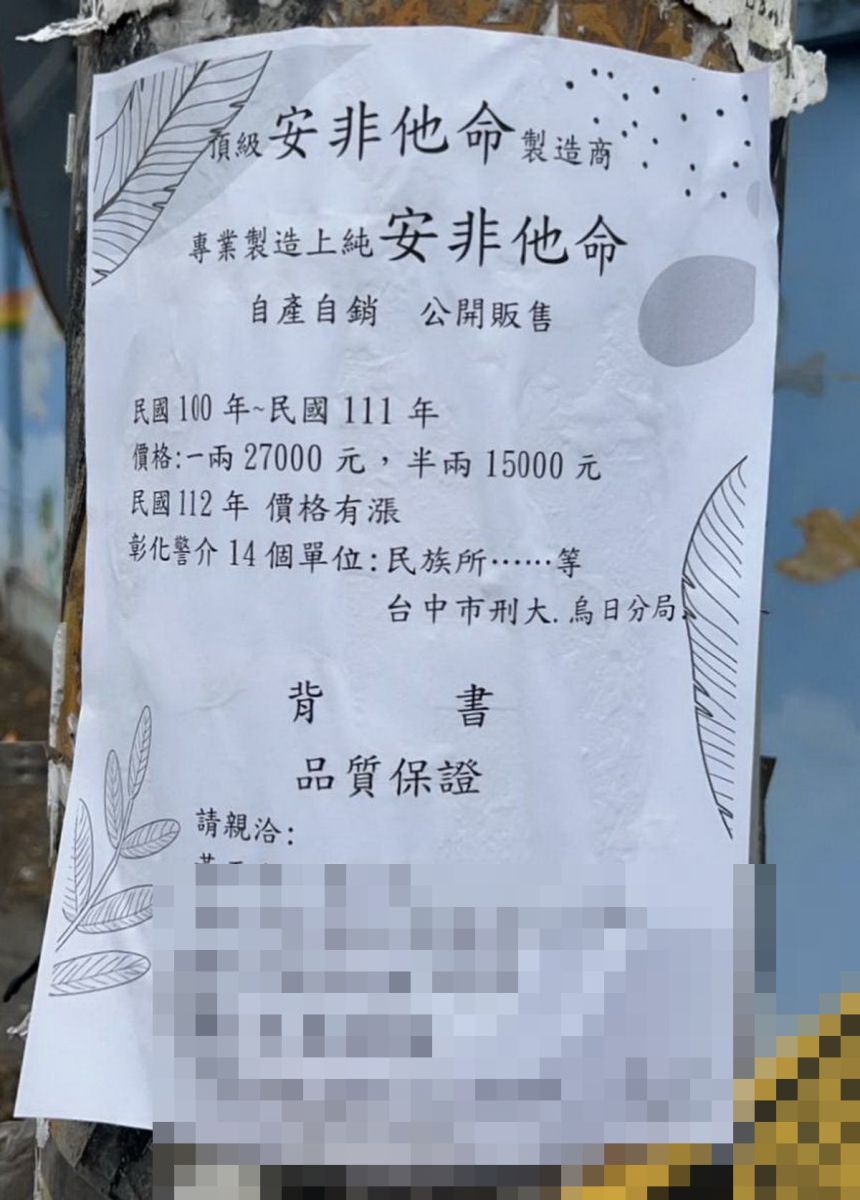 頂級安非他命製造商
專業製造上純安非他命
自產自銷 公開販售
民國100年~民國111年
價格:一兩27000元，半兩15000元
民國112年 價格有漲
彰化警介14個單位:民族所……等
台中市刑大.烏日分局.
背 書
品質保證
請親洽: